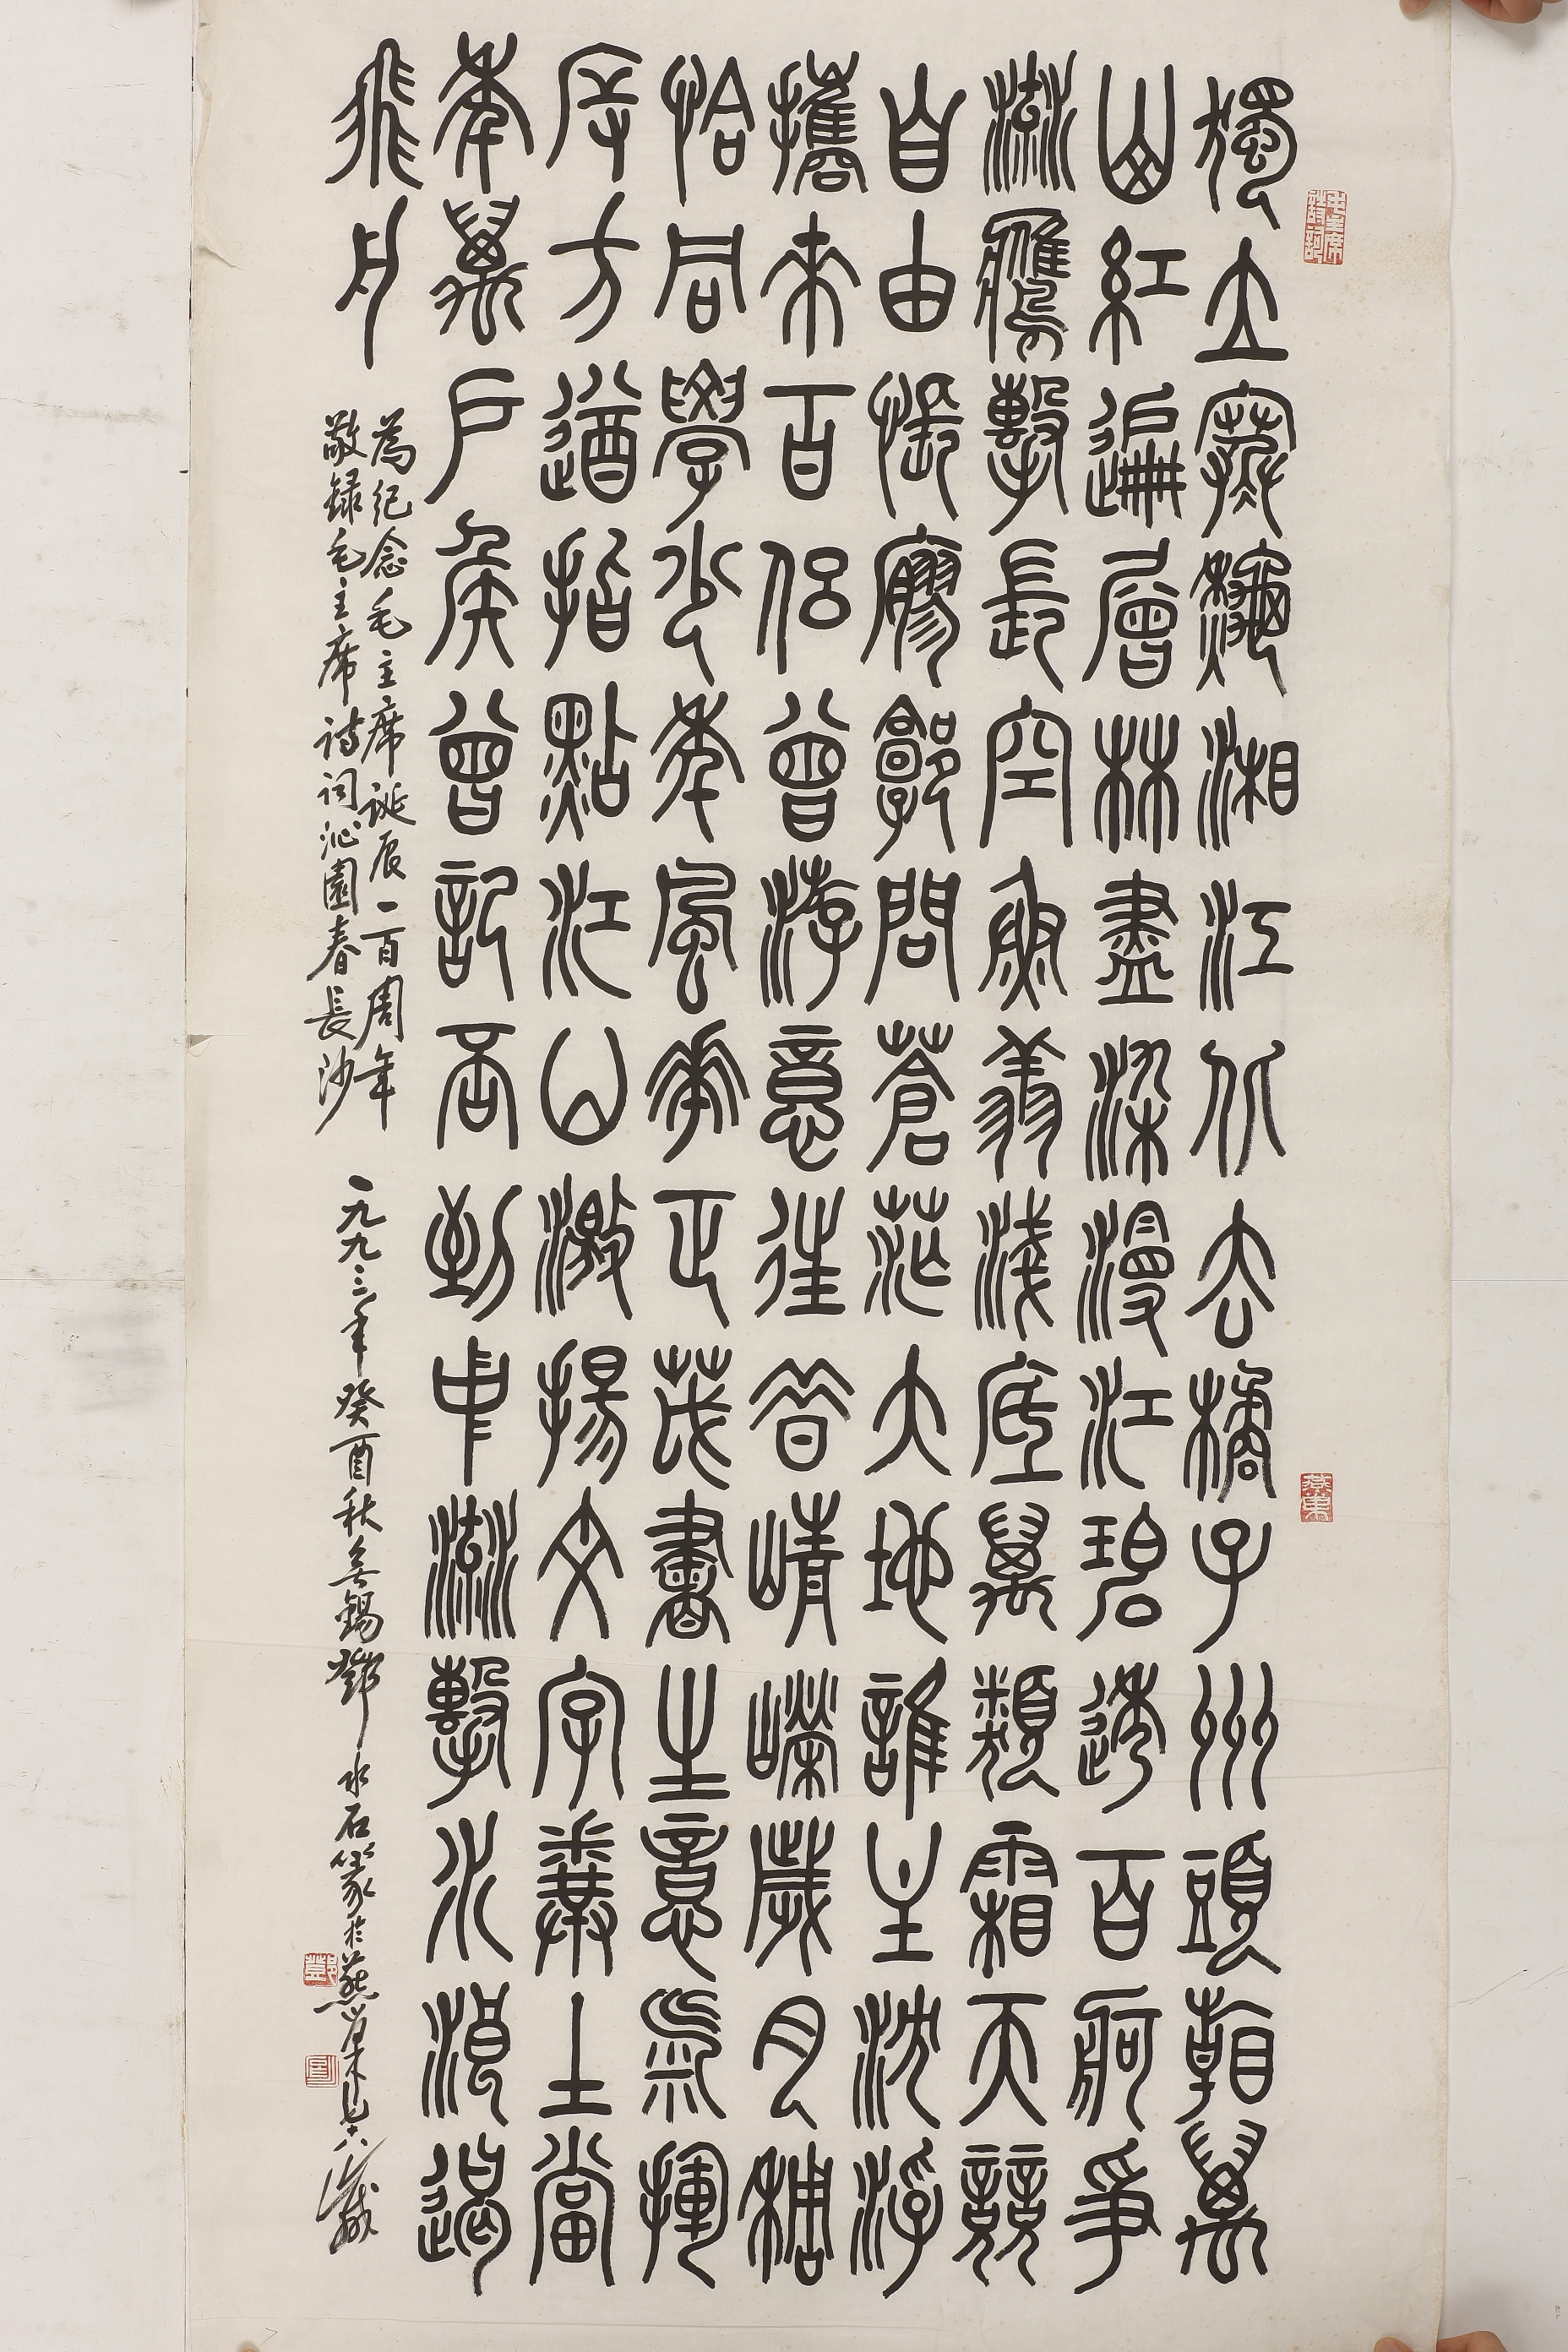 毛主席詩詞
燕巢
獨立寒秋湘江北去橘子州頭看萬
山紅遍層林盡染漫江碧透百舸爭
流鷹擊長空魚翔淺底萬類霜天競
自由悵廖廓問蒼茫大地誰主沈浮
攜來百侶曾游憶往昔崢嶸歲月稠
恰同學少年風華正茂書生意氣揮
斥方遒指點江山激揚文字糞土當
年萬戶侯曾記否到中流擊水浪遏
飛舟
為紀念毛主席誕辰一百周年
敬録毛主席诗词沁園春長沙
一九九三年癸酉秋無錫鄧水石篆於燕巢七十八歲
鄧